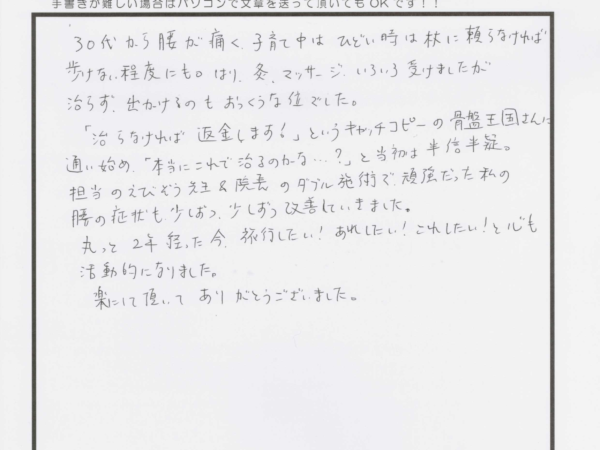 手書きが難しい場合はパソコンで文章を送って頂いてもOKです！！
30代から腰が痛く、子育て中はひどい時は杖に頼らなければ
歩けない程度にも。はり、灸、マッサージ、いろいろ受けましたが
治らず、出かけるのもおっくうな位でした。
「治らなければ 返金します！」というキャッチコピーの骨盤王国さんに
通い始め、「本当にこれで治るのかな…？」と当初は半信半疑。
担当のえびぞう先生&院長のダブル施術で、頑強だった私の
腰の症状も、少しずつ、少しずつ改善していきました。
丸っと2年経った今、旅行したい！あれしたい！これしたい！と心も
活動的になりました。
楽にして頂いて ありがとうございました。